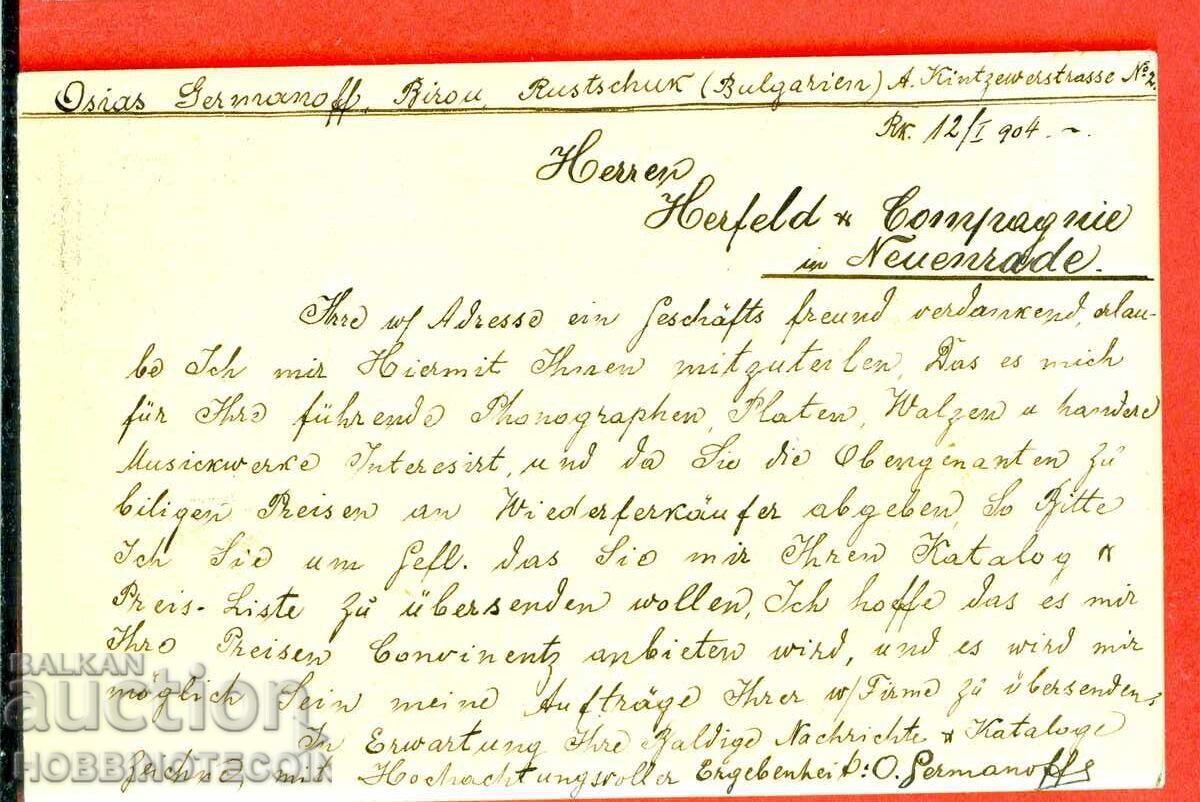 Osias Germanoff, Birou, Rustschuk (Bulgarien) A. Kintzewerstrasse No 2.
Rk. 12/I 904. ~.
Herren
Herfeld & Compagnie
in Neuenrade.
Ihre w/ Adresse ein Geschäfts freund verdankend, erlau-
be Ich mir Hiermit Ihnen mitzuteilen, Das es mich
für Ihre führende Phonographen, Platen, Walzen u handere
Musickwerke Interesirt, und da Sie die Obengenanten zu
biligen Preisen an Wiederferkäufer abgeben, So Bitte
Ich Sie um Gefl. das Sie mir Ihren Katalog &
Preis-Liste zu übersenden wollen, Ich hoffe das es mir
Ihre Preisen Convinentz anbieten wird, und es wird mir
möglich Sein meine Aufträge Ihrer w/ Firme zu übersenden,
In Erwartung Ihre Baldige Nachrichte & Kataloge
mit Hochachtungsvoller Ergebenheit: O. Germanoff
BALKAN
auction
HOBBINOTE.COM